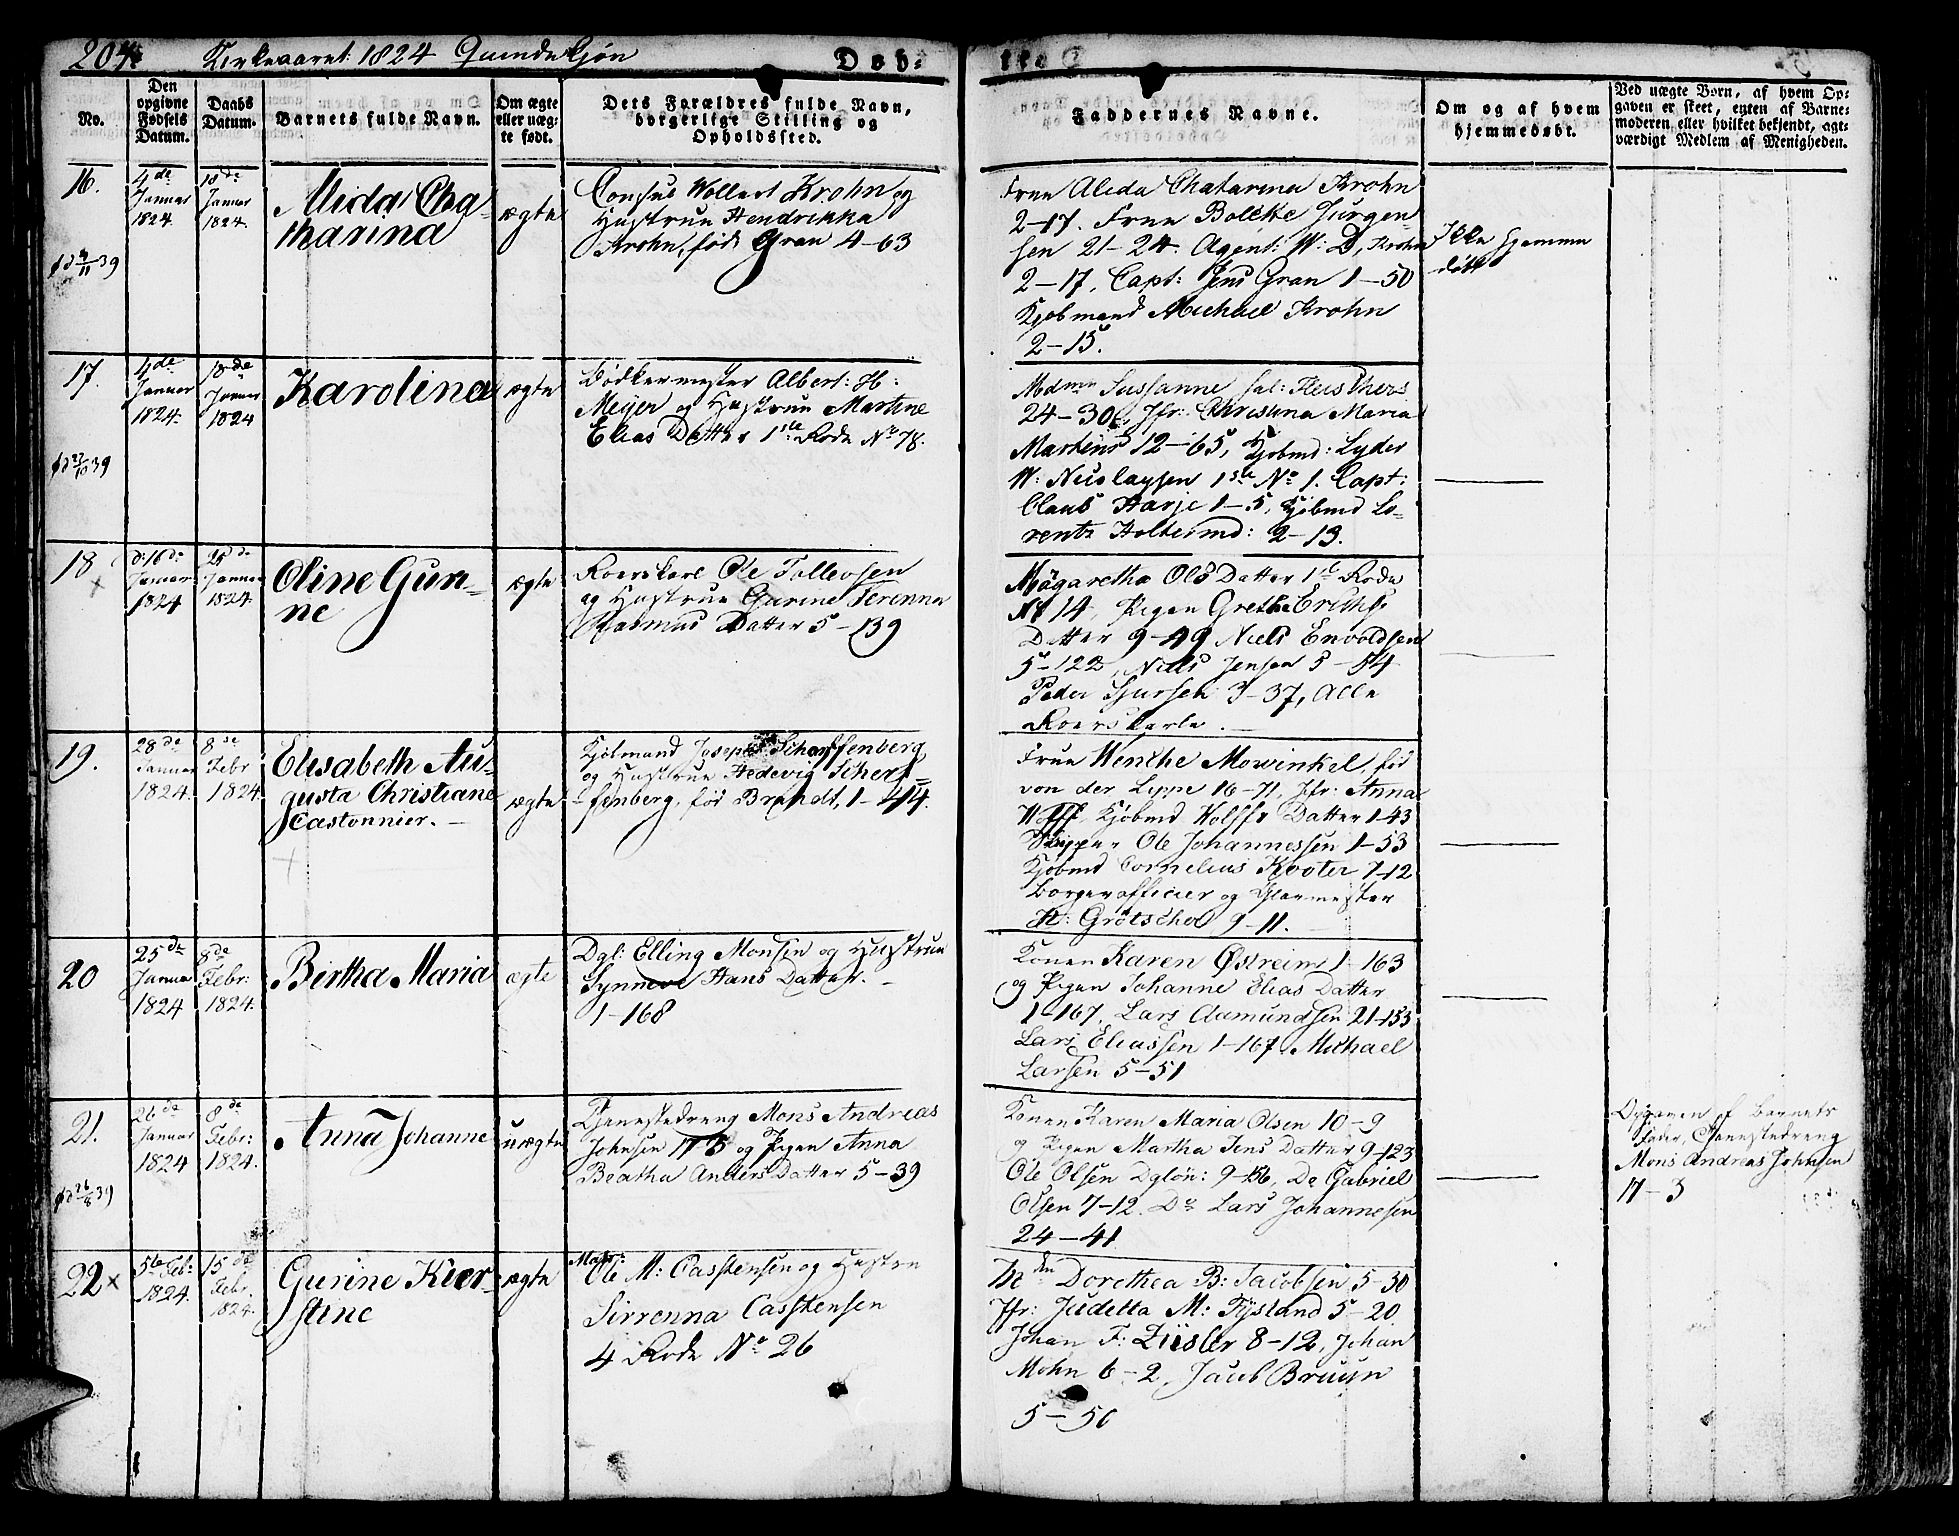 204. Kirkeaaret 1824 Qvindekjøn
Døb-
No.
Den opgivne Fødsels Datum.
Daabs Datum.
Barnets fulde Navn.
Om ægte eller uægte født.
Dets Forældres fulde Navn, borgerlige Stilling og Opholdssted.
Faddernes Navne.
Om og af hvem hjemmedøbt.
Ved uægte Børn, af hvem Opgaven er skeet, enten af Barnemoderen eller hvilket bekjendt, agtværdigt Medlem af Menigheden.
16.
4de Januar 1824
18de Januar 1824.
Alida Chatharina
ægte
Consul Wollert Krohn og
Hustrue Hendrikka
Krohn, fød Gran 4-63
Frue Alida Chatarina Krohn
2-17. Frue Bolette Jürgensen
21-24. Agent: W: D. Krohn
2-17, Capt: Jens Gran 1-50
Kjøbmand Michael Krohn
2-15.
Ikke hjemmedøbt
17.
4de Januar 1824.
18de Januar 1824
Karolina
ægte
Bødkermester Albert: H:
Meyer og Hustrue Martine
Elias Datter 1ste Rode No 78.
Madme Sussanne sal:
24-30, Jfr: Christina Maria
Martens 12-65, Kjøbmd: Lyder
W: Nicolaysen 1ste No 1. Capt:
Claus Harje 1-5, Kjøbmd Lorentz
Holtermd: 2-13.
18
d: 16de Januar 1824
25de Januar 1824.
Oline Gunne
ægte
Roerskarl Ole Tollevsen
og Hustrue Gurine Serenna
Rasmus Datter 5-139
Magaretha Ols Datter 1ste Rode
No 14, Pigen Grethe Erichs
Datter 9-49 Niels Envoldsen
5-122, Niels Jensen 5-54
Peder Sjursen 3-37, Alle
Roerskarle.
19.
28de Januar 1824.
8de Febr 1824.
Elisabeth Augusta Christiane Castonnier.
ægte
Kjøbmand Joseph Scharffenberg
og Hustrue Hedevig Scharffenberg,
fød Brandt, 1-44.
Frue Wenche Mowinkel, fød
von der Lippe 16-71, Jfr: Anna
Wolff, Kjøbmd Wolffs Datter 1-43
Skipper Ole Johannessen 1-53
Kjøbmd Cornelius Kooter 7-12
Borgerofficier og Glarmester
H: Grötschel 9-11.
20
25de Januar 1824
8de Febr: 1824.
Birtha Maria
ægte
Dgl: Elling Monsen og Hustrue
Synneve Hans Datter.
1-168
Konen Karen Østreim 1-163
og Pigen Johanne Elias Datter
1-167. Lars Aamundsen 21-153
Lars Eliassen 1-167, Michael
Larsen 5-51
21.
26de Januar 1824
8de Febr: 1824.
Anna Johanne
uægte
Tjenestedreng Mons Andreas
Johnsen 17-3 og Pigen Anna
Beatha Anders Datter 5-39
Konen Karen Maria Olsen 10-9
og Pigen Martha Jens Datter 9-123
Ole Olsen Dgløn: 9-156, Do Gabriel
Olsen 7-12. Do Lars Johannesen
24-41
Opgaven af Barnets
Fader, Tjenestedreng
Mons Andreas Johnsen
17-3
22
5te Feb: 1824.
15de Febr 1824.
Gurine Kierstine
ægte
Ole M: Casstensen og Hustru
Sirrenna Casstensen
4 Rode No 26
Mdm Dorethea B: Jacobsen 5-30
Jfr: Judetta M: Fysland 5-20
Johan F: Züsler 8-12, Johan
Mohn 6-2, Jacob Bruun
5-50